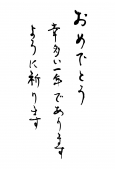 おめでとう
幸多い一年であります
ように祈ります